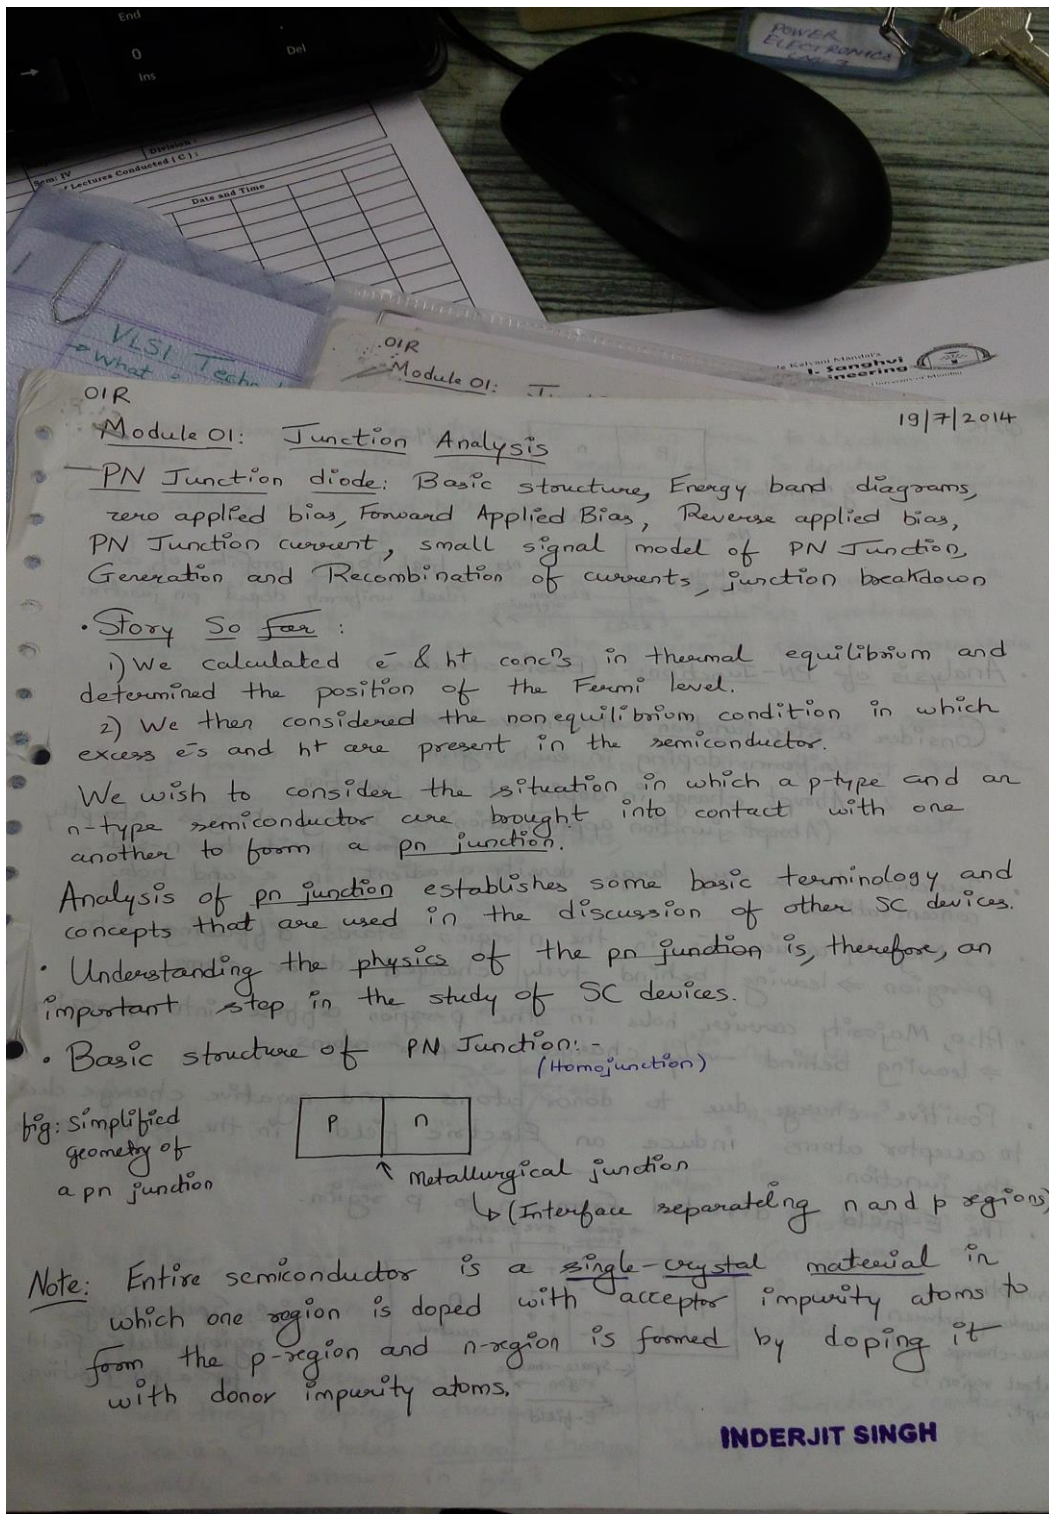 End
0
Ins
Del
→
POWER
ELECTRONICS
Sem: IV
Division:
Lectures Conducted (C):
Date and Time
VLSI Techn
→ What
01R
Module 01:
Kalvani Mandal's
J. Sanghvi
ineering
01R
19/7/2014
Module 01: Junction Analysis
PN Junction diode: Basic structure, Energy band diagrams,
zero applied bias, Forward Applied Bias, Reverse applied bias,
PN Junction current, small signal model of PN Junction,
Generation and Recombination of currents, junction breakdown
• Story So far :
1) We calculated e⁻ & h⁺ concⁿs in thermal equilibrium and
determined the position of the Fermi level.
2) We then considered the nonequilibrium condition in which
excess e⁻s and h⁺ are present in the semiconductor.
We wish to consider the situation in which a p-type and an
n-type semiconductor are brought into contact with one
another to form a pn junction.
Analysis of pn junction establishes some basic terminology and
concepts that are used in the discussion of other SC devices.
• Understanding the physics of the pn junction is, therefore, an
important step in the study of SC devices.
• Basic structure of PN Junction:-
(Homojunction)
fig: Simplified
geometry of
a pn junction
p n
↑ Metallurgical junction
↳ (Interface separateing n and p regions)
Note: Entire semiconductor is a single-crystal material in
which one region is doped with acceptor impurity atoms to
form the p-region and n-region is formed by doping it
with donor impurity atoms.
INDERJIT SINGH